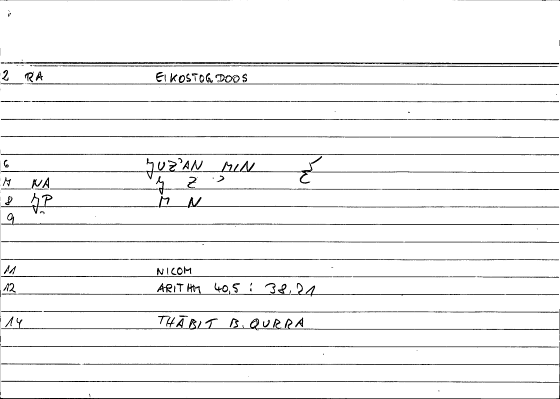 2 RA EIKOSTOGDOOS
6 ǦUZʾAN MIN
7 NA Ǧ Z ʾ
8 ǦP M N
9
11 NICOM
12 ARITHM 40,5 : 38,21
14 THĀBIT B. QURRA